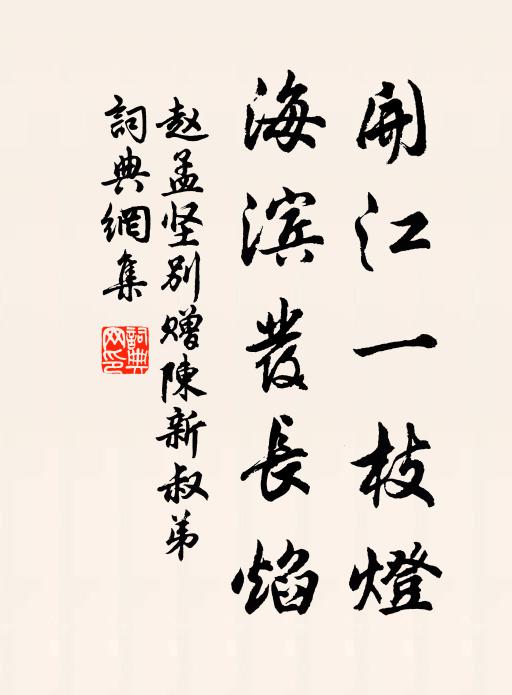 開江一枝燈
海滨發長焰
赵孟坚别赠陳新叔弟
詞典網集
詞典網印